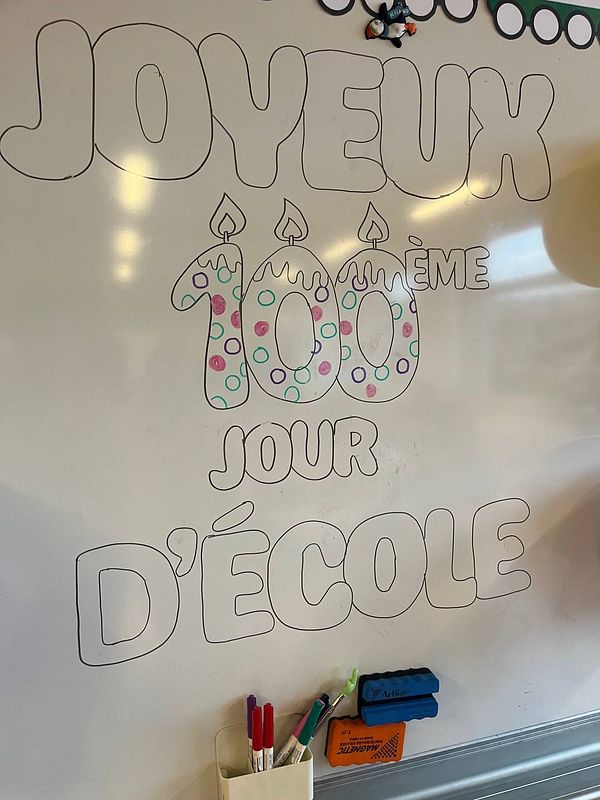 JOYEUX
100ÈME
JOUR
D'ÉCOLE
Artline
MAGNETIC